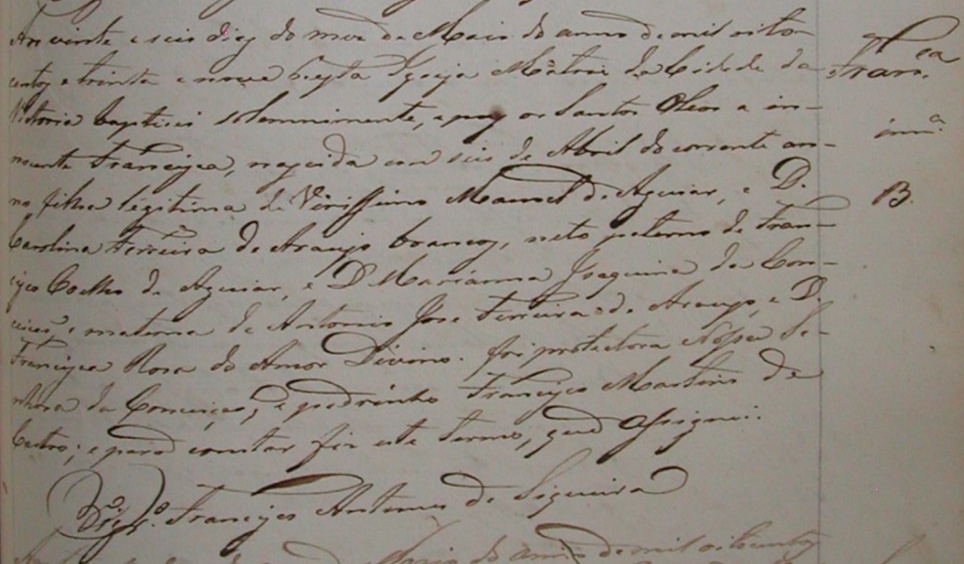 Aos vinte e seis dias do mez de Maio do anno de mil oito-
centos e trinta e nove nesta Igreja Matriz da Cidade da
Victoria baptizei solemnimente, e puz os Santos Oleos a in-
nocente Francisca, nascida em seis de Abril do corrente an-
no filha legitima de Virissimo Manoel de Aguiar, e D.
Carolina Ferreira de Araujo brancos, neta paterna de Fran-
cisco Coelho de Aguiar, e D Marianna Joaquina da Con-
ceicaõ e materna de Antonio Jose Ferreira de Araujo, e D.
Francisca Rosa do Amor Divino. foi protectora Nossa Se-
nhora da Conceiçaõ, e padrinho Francisco Martins de
Castro; e para constar fiz este termo, que assignei:
Francisco Antunes de Siqueira
Fran.ca
inn.e
B.
do anno de mil oitocentos